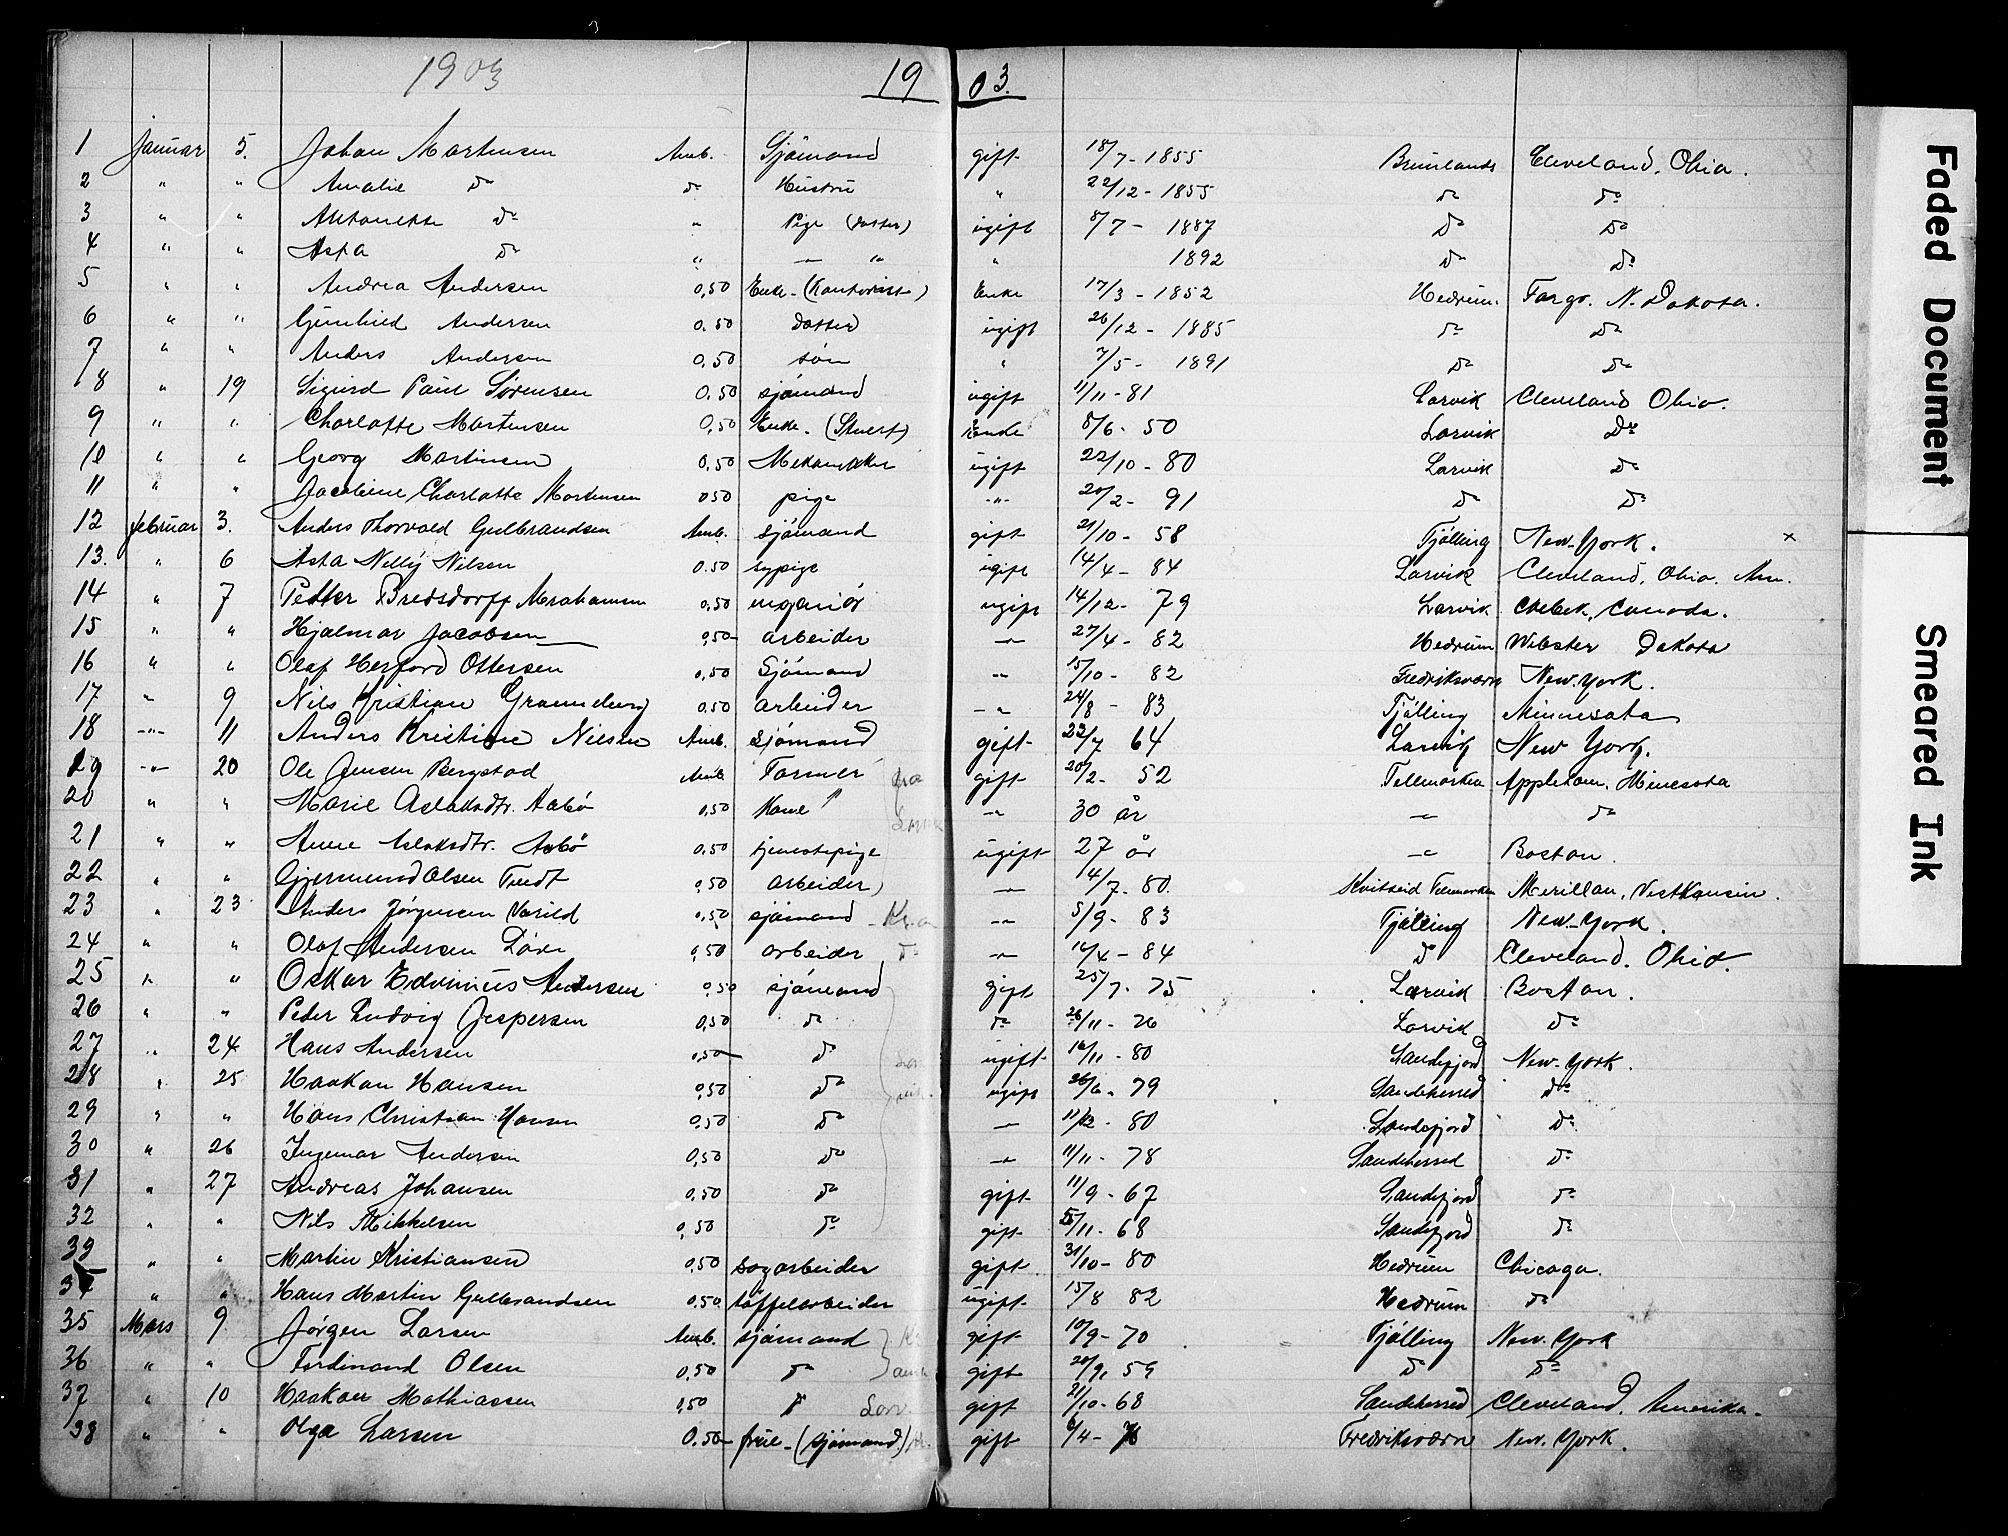 1903
19 03.
1 Januar 5. Johan Martensen Amb. Sjömand gift 18/7-1855 Brunlands Cleveland, Ohio.
2 " " Amalie do do Hustru " 22/12-1855 do do
3 " " Antonette do " Pige (datter) ugift 8/7-1887 do do
4 " " Asta do " — " " 1892 do do
5 " " Andrea Andersen 0,50 Enke-(Kontorist) Enke 17/3-1852 Hedrum. Fargo. N. Dakota.
6 " " Gunhild Andersen 0.50 datter ugift 26/12-1885 do do
7 " " Anders Andersen 0,50 søn " 7/5-1891 do do
8 " 19 Sigurd Paul Sørensen 0,50 sjömand ugift 11/11-81 Larvik Cleveland Ohio.
9 " " Charlotte Martensen 0,50 Enke. (Stuert) Enke 8/6-50 Larvik do
10 " " Georg Martinsen 0,50 ugift 22/10-80 Larvik do
11 " " Jacobine Charlotte Mortensen 050 pige -"- 20/2-91 do do
12 februar 3. Anders Thorvald Gulbrandsen Amb. sjömand gift 21/10-58 Tjölling New-York. x
13. " 6 Asta Nelly Nilsen 0.50 sypige ugift 14/4-84 Larvik Cleveland, Ohio. Am.
14 " 7 Petter Bredsdorff Abrahamsen 0,50 ingeniör ugift 14/12-79 Larvik Canada.
15 " " Hjalmar Jacobsen 0,50 arbeider -"- 27/4-82 Hedrum Webster Dakota
16 " " Olaf Herford Ottersen 0,50 Sjömand -"- 15/10-82 Fredriksværn New-York.
17 " 9 Nils Kristian 0,50 arbeider -"- 24/8-83 Tjölling Minnesota
18 -"- 11 Anders Kristine Nielsen Amb. sjömand gift 22/7 64 Larvig New York.
19 -"- 20 Ole Jensen Bergstad Amb. Farmer fra gift 20/2-52 Tellmarken Appleton. Minesota
20 " " Marie Aslaksdtr. Aabö 0,50 Kone -"- 30 år -"- do
21 " " Anne Aslaksdtr. Aabö 0.50 tjenestepige ugift 27 år -"- Boston.
22 " " Gjermund Olsen 0,50 arbeider -"- 4/7-80. Kvitseid Telemarken Merillan,
23 " 23 Anders Jørgensen Varild 0,50 sjömand Kr.a -"- 5/9-83 Tjølling New-York.
24 " " Olaf Andersen 0,50 arbeider do -"- 14/4-84 do Cleveland. Ohio.
25 " " Oskar Edvinius Andersen 0,50 sjömand gift 25/7-75 Larvik Boston.
26 " " Peter Ludvig Jespersen 0,50 do do 28/11-76 Larvik do
27 " 24 Hans Andersen 0,50 do ugift 16/11-80 Sandefjord New-York.
28 " 25 Haakon Hansen 0,50 do ugift 26/6-79 Sandeherred do
29 " " Hans Christian Hansen 0,50 do -"- 11/12-80 Sandefjord do
30 " 26 Ingemar Andersen 0,50 do -"- 11/11-78 Sandeherred do
31 " 27 Andreas Johansen 0.50 do gift 11/9-67 Sandefjord do
32 " " Nils Mikkelsen 0,50 do gift /11-68 Sandefjord do
33 " " Martin Kristiansen 0,50 sagarbeider gift 31/10-80 Hedrum Chicago.
34 " " Hans Martin Gulbrandsen 0.50 töffelarbeider ugift 15/8 82 Hedrum do
35 Mars 9 Jörgen Larsen Amb. sjömand gift 10/9-70 Tjölling New-York
36 " " Ferdinand Olsen 0,50 do gift 20/9, 59 do do
37 " 10 Haakon Mathiassen 0,50 do Larv. gift 21/10-68 Sandeherred Cleveland. Amerika.
38 " " Olga Larsen 0.50 frue-(sjömand) gift 6/4- Fredriksværn New-York.
Faded Document
Smeared Ink